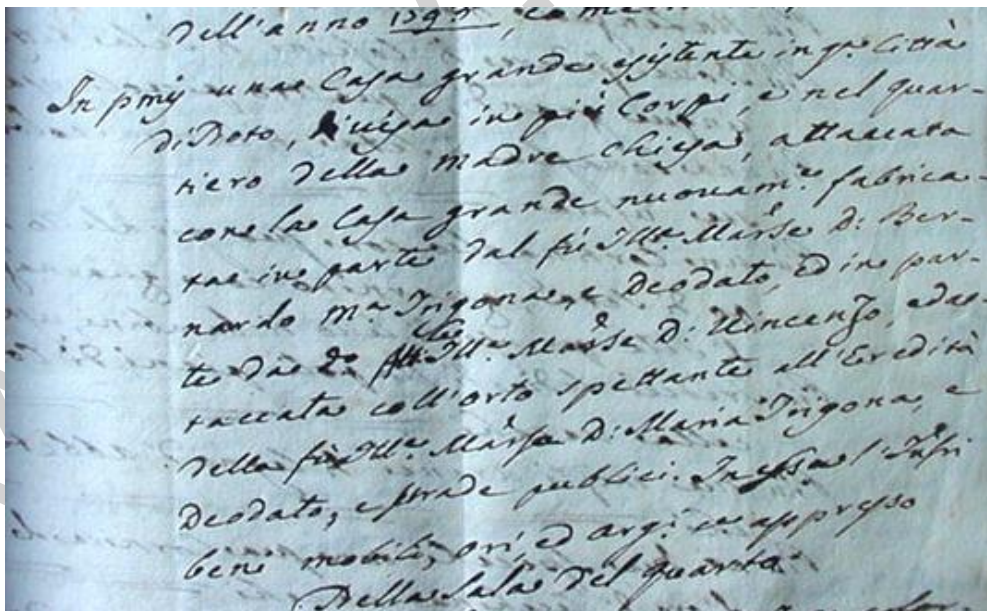 dell'anno 1797, co
In pmis una Casa grande esistente in qa. Città
di Noto, divisa in più Corpi, e nel quar-
tiero della madre chiesa, attaccata
con la Casa grande nuovam.e fabrica-
ta in parte dal fù Ill.e Marse D: Ber-
nardo m.a Trigona, e Deodato, ed in par-
te da Ill.e Marse D: Vincenzo, ed at-
taccata coll'orto spettante all'Eredità
della fù Ill.e Marsa D: Maria Trigona, e
Deodato, e strade publici. In essa l'infri
beni mobili, ori, ed arg.i appresso
Della Sala del quarto